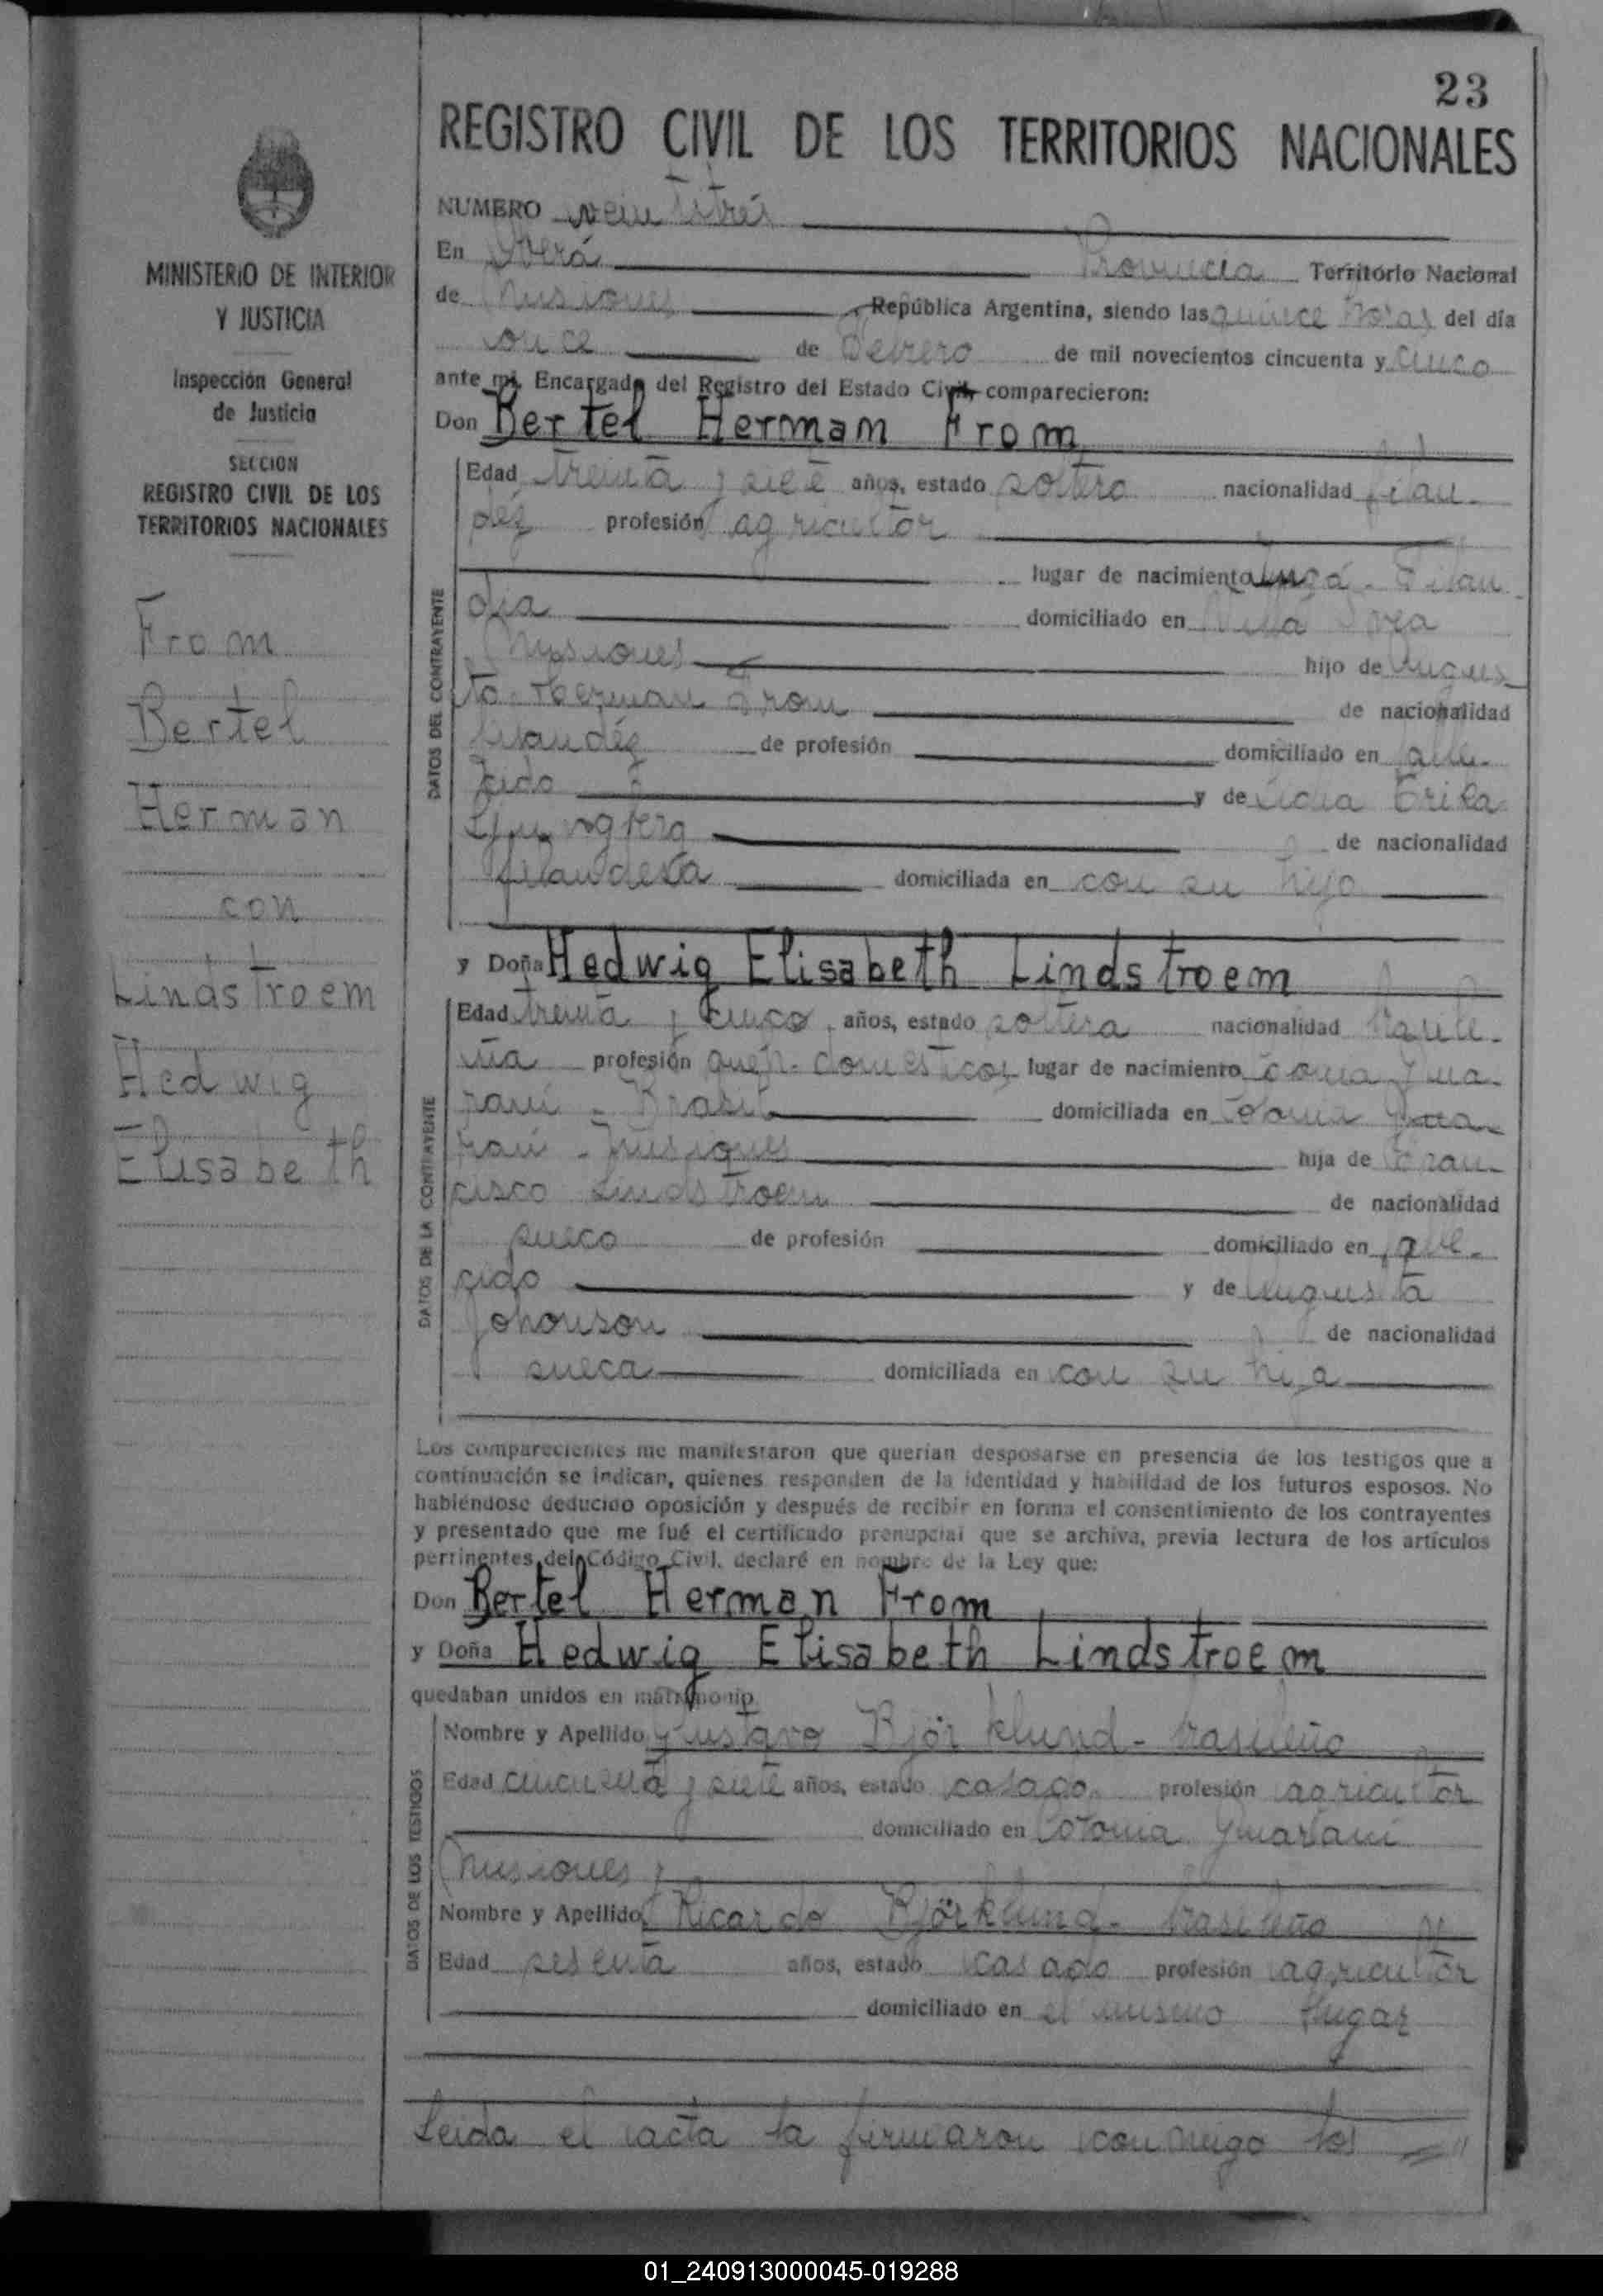 23
REGISTRO CIVIL DE LOS TERRITORIOS NACIONALES
MINISTERIO DE INTERIOR
Y JUSTICIA
Inspección General
de Justicia
SECCION
REGISTRO CIVIL DE LOS
TERRITORIOS NACIONALES
From
Bertel
Herman
con
Lindstroem
Hedwig
Elisabeth
NUMERO veintitrés
En Oberá Provincia Territorio Nacional
de Misiones, República Argentina, siendo las quince horas del día
once de Febrero de mil novecientos cincuenta y cinco
ante mi, Encargado del Registro del Estado Civil, comparecieron:
Don Bertel Hermam From
DATOS DEL CONTRAYENTE
Edad treinta y siete años, estado soltero nacionalidad filan-
déz profesión agricultor
lugar de nacimiento Filan-
dia domiciliado en Villa
Misiones hijo de Augus-
to Herman From de nacionalidad
filandéz de profesión domiciliado en falle-
cido y de Erika
de nacionalidad
filandesa domiciliada en con su hijo
y Doña Hedwig Elisabeth Lindstroem
DATOS DE LA CONTRAYENTE
Edad treinta y cinco, años, estado soltera nacionalidad brasile-
ña profesión queh. domesticos lugar de nacimiento
rani - Brasil domiciliada en Colonia Gua-
raní - Misiones hija de Fran-
cisco Lindstroem de nacionalidad
sueco de profesión domiciliado en falle-
cido y de Augusta
Johonson de nacionalidad
sueca domiciliada en con su hija
Los comparecientes me manifestaron que querían desposarse en presencia de los testigos que a
continuación se indican, quienes responden de la identidad y habilidad de los futuros esposos. No
habiéndose deducido oposición y después de recibir en forma el consentimiento de los contrayentes
y presentado que me fué el certificado prenupcial que se archiva, previa lectura de los artículos
pertinentes del Código Civil, declaré en nombre de la Ley que:
Don Bertel Herman From
y Doña Hedwig Elisabeth Lindstroem
quedaban unidos en matrimonio.
DATOS DE LOS TESTIGOS
Nombre y Apellido Gustavo Björklund - brasileño
Edad cincuenta y siete años, estado casado profesión agricultor
domiciliado en Colonia Guaraní
Misiones y
Nombre y Apellido Ricardo Björklund - brasileño
Edad sesenta años, estado casado profesión agricultor
domiciliado en el mismo lugar
Leida el acta la firmaron conmigo los
01_240913000045-019288